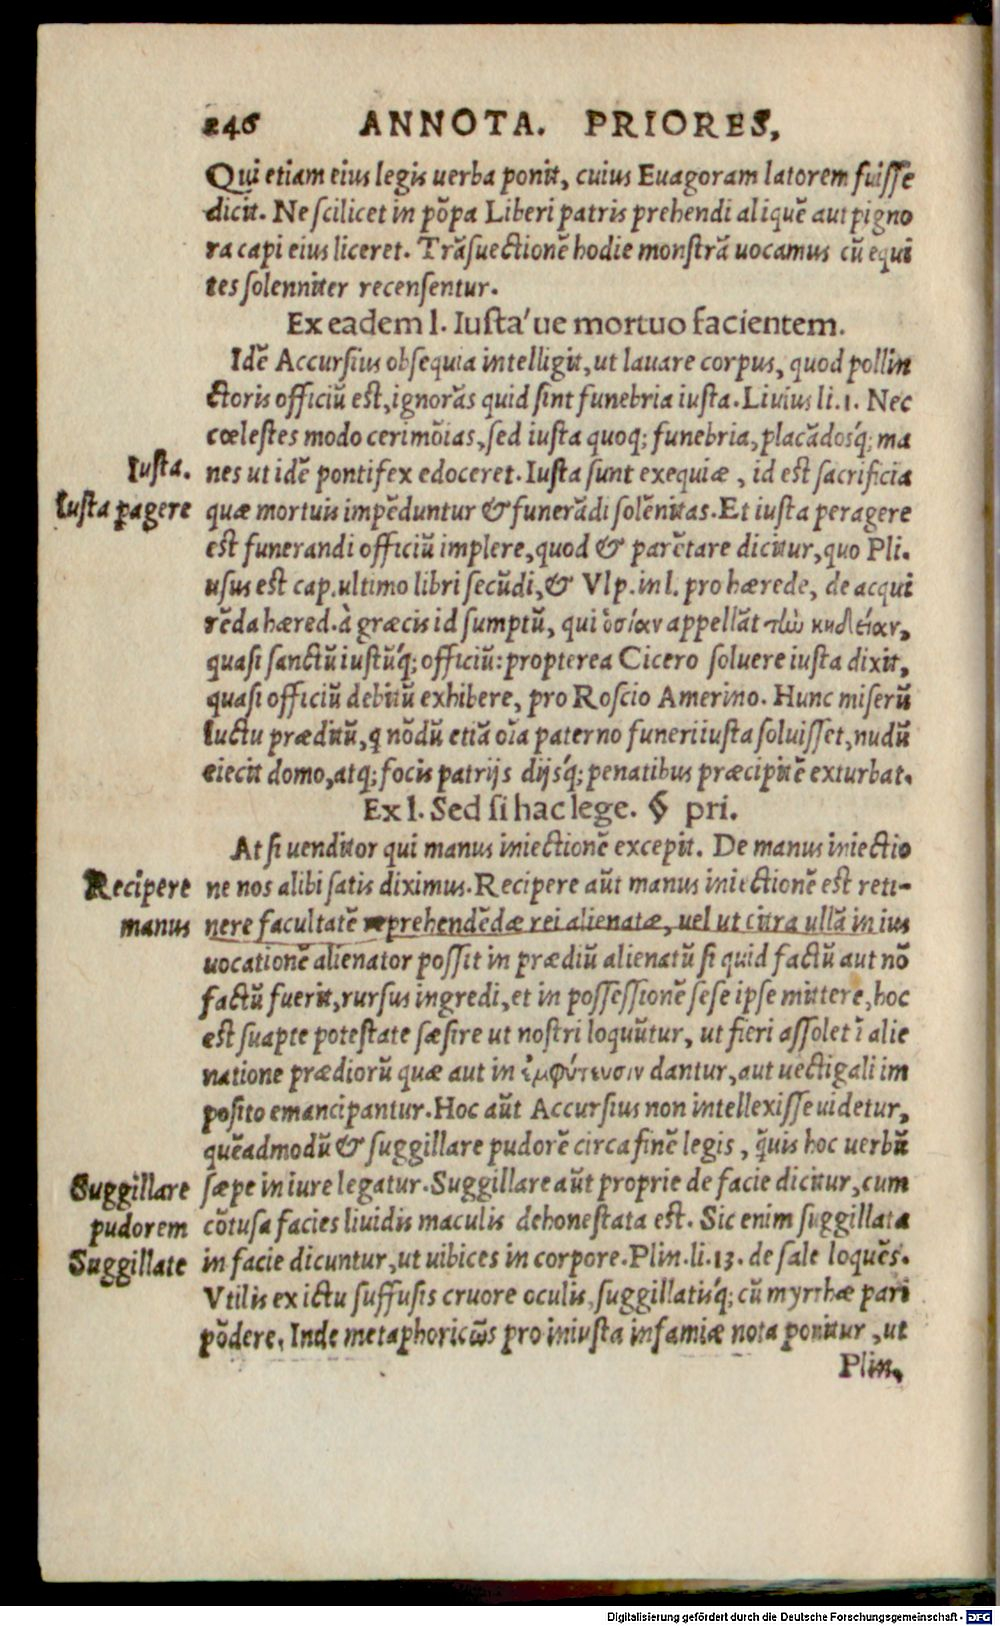 246 ANNOTA. PRIORES,
Qui etiam eius legis uerba ponit, cuius Euagoram latorem fuisse
dicit. Ne scilicet in põpa Liberi patris prehendi aliquẽ aut pigno
ra capi eius liceret. Trãsuectionẽ hodie monstrã uocamus cũ equi
tes solenniter recensentur.
Ex eadem l. Iusta'ue mortuo facientem.
Idẽ Accursius obsequia intelligit, ut lauare corpus, quod pollin
ctoris officiũ est, ignorãs quid sint funebria iusta. Liuius li.1. Nec
cœlestes modo cerimõias, sed iusta quoq; funebria, placãdosq́; ma
Iusta. nes ut idẽ pontifex edoceret. Iusta sunt exequiæ, id est sacrificia
Iusta ꝑagere quæ mortuis impẽduntur & funerãdi solẽnitas. Et iusta peragere
est funerandi officiũ implere, quod & parẽtare dicitur, quo Pli.
usus est cap. ultimo libri secũdi, & Vlp. in l. pro hærede, de acqui
rẽda hæred. à græcis id sumptũ, qui ὁσίαν appellãt τὼ κηδείαν,
quasi sanctũ iustũq́; officiũ: propterea Cicero soluere iusta dixit,
quasi officiũ debitũ exhibere, pro Roscio Amerino. Hunc miserũ
luctu præditũ, q nõdũ etiã oĩa paterno funeri iusta soluisset, nudũ
eiecit domo, atq; focis patrijs dijsq́; penatibus præcipitẽ exturbat.
Ex l. Sed si hac lege. § pri.
At si uenditor qui manus iniectionẽ excepit. De manus iniectio
Recipere ne nos alibi satis diximus. Recipere aũt manus iniectionẽ est reti-
manus nere facultatẽ reprehendẽdæ rei alienatæ, uel ut citra ullã in ius
uocationẽ alienator possit in prædiũ alienatũ si quid factũ aut nõ
factũ fuerit, rursus ingredi, et in possessionẽ sese ipse mittere, hoc
est suapte potestate sæsire ut nostri loquũtur, ut fieri assolet ĩ alie
natione prædiorũ quæ aut in ἐμφύτευσιν dantur, aut uectigali im
posito emancipantur. Hoc aũt Accursius non intellexisse uidetur,
quẽadmodũ & suggillare pudorẽ circa finẽ legis, q̃uis hoc uerbũ
Suggillare sæpe in iure legatur. Suggillare aũt proprie de facie dicitur, cum
pudorem cõtusa facies liuidis maculis dehonestata est. Sic enim suggillata
Suggillate in facie dicuntur, ut uibices in corpore. Plin. li. 13. de sale loquẽs.
Vtilis ex ictu suffusis cruore oculis, suggillatisq́; cũ myrrhæ pari
põdere. Inde metaphoricω̃s pro iniusta infamiæ nota ponitur, ut
Plin.
Digitalisierung gefördert durch die Deutsche Forschungsgemeinschaft - DFG